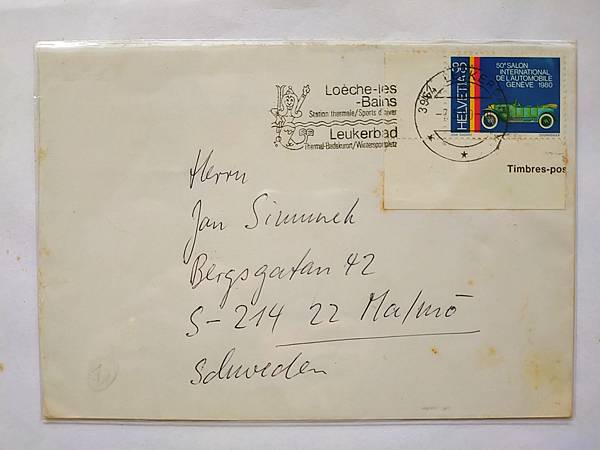 Loèche-les
-Bains
Station thermale/Sports d'hiver
Leukerbad
Thermal-Badekurort/Wintersportplatz
3954 LEUKERBAD
HELVETIA 80
50e SALON
INTERNATIONAL
DE L'AUTOMOBILE
GENÈVE 1980
Timbres-pos
Herrn
Jan Simmneh
Bergsgatan 42
S-214 22 Malmö
Schweden